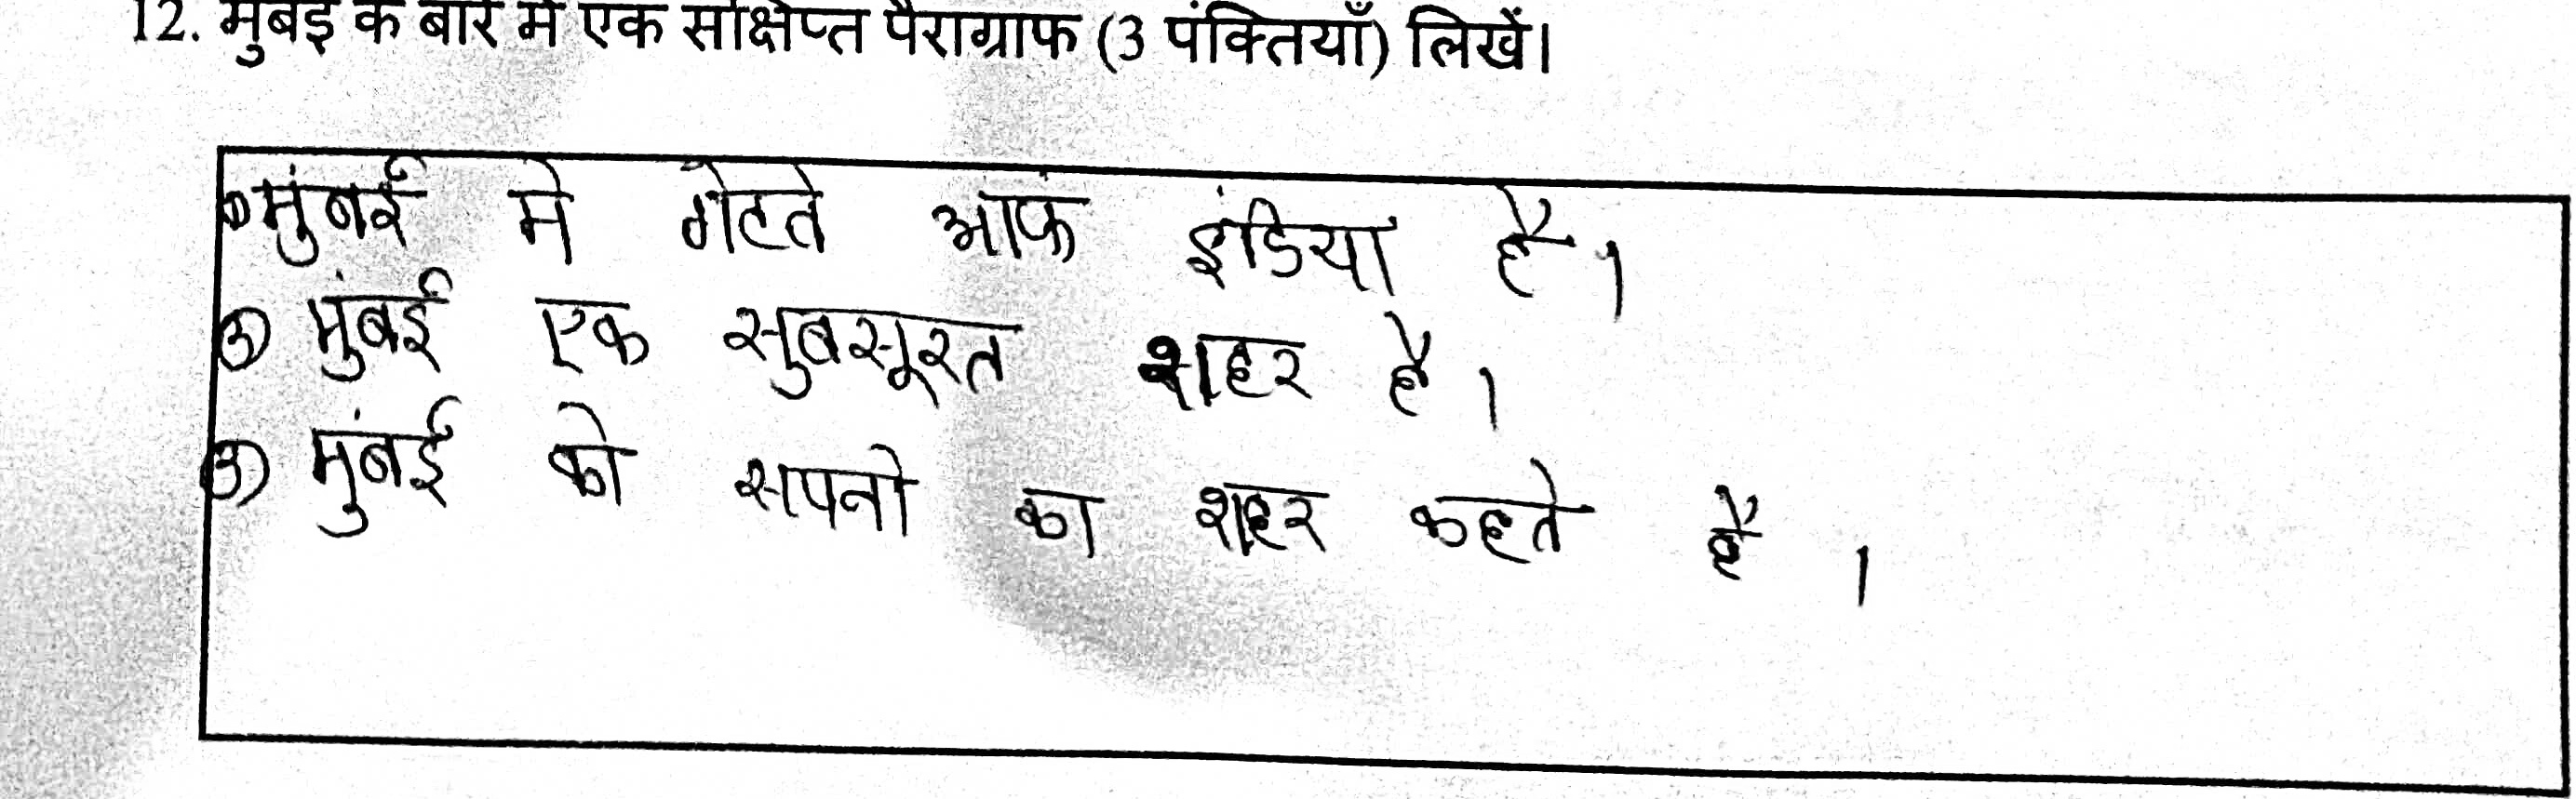 12. मुंबई के बारे में एक संक्षिप्त पैराग्राफ (3 पंक्तियाँ) लिखें।
मुंबई मे गेटते आफ इंडिया है।
मुंबई एक सुबसूरत शहर है।
3) मुंबई को सपनो का शहर कहते है।